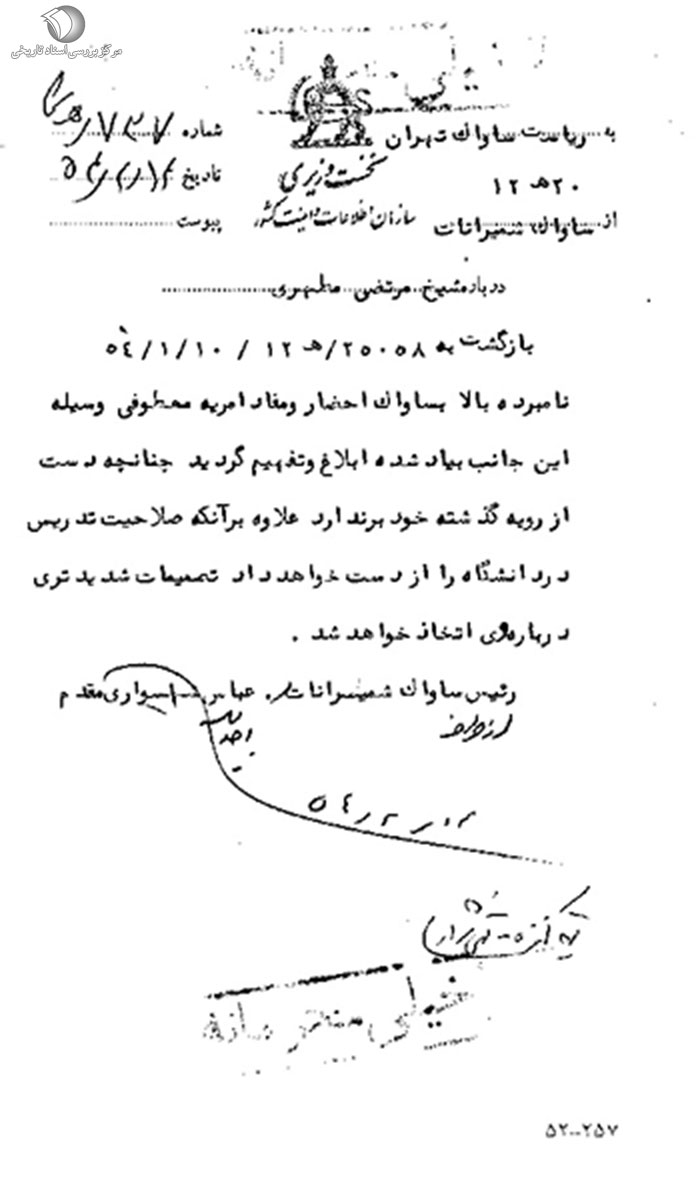 مرکز بررسی اسناد تاریخی
خیلی محرمانه
به ریاست ساواک تهران
۲۰ هـ ۱۲
از ساواک شمیرانات
نخست وزیری
سازمان اطلاعات و امنیت کشور
شماره
تاریخ
پیوست
درباره شیخ مرتضی مطهری
بازگشت به ۲۵۰۵۸/هـ ۱۲ / ۵۴/۱/۱۰
نامبرده بالا بساواک احضار ومفاد امریه معطوفی وسیله
این جانب بیاد شده ابلاغ وتفهیم گردید چنانچه دست
از رویه گذشته خود برندارد علاوه برآنکه صلاحیت تدریس
دردانشگاه را از دست خواهد داد تصمیمات شدیدتری
درباره‌وی اتخاذ خواهد شد .
رئیس ساواک شمیرانات. عباس شاهسواری مقدم
خیلی محرمانه
۵۲-۲۵۷